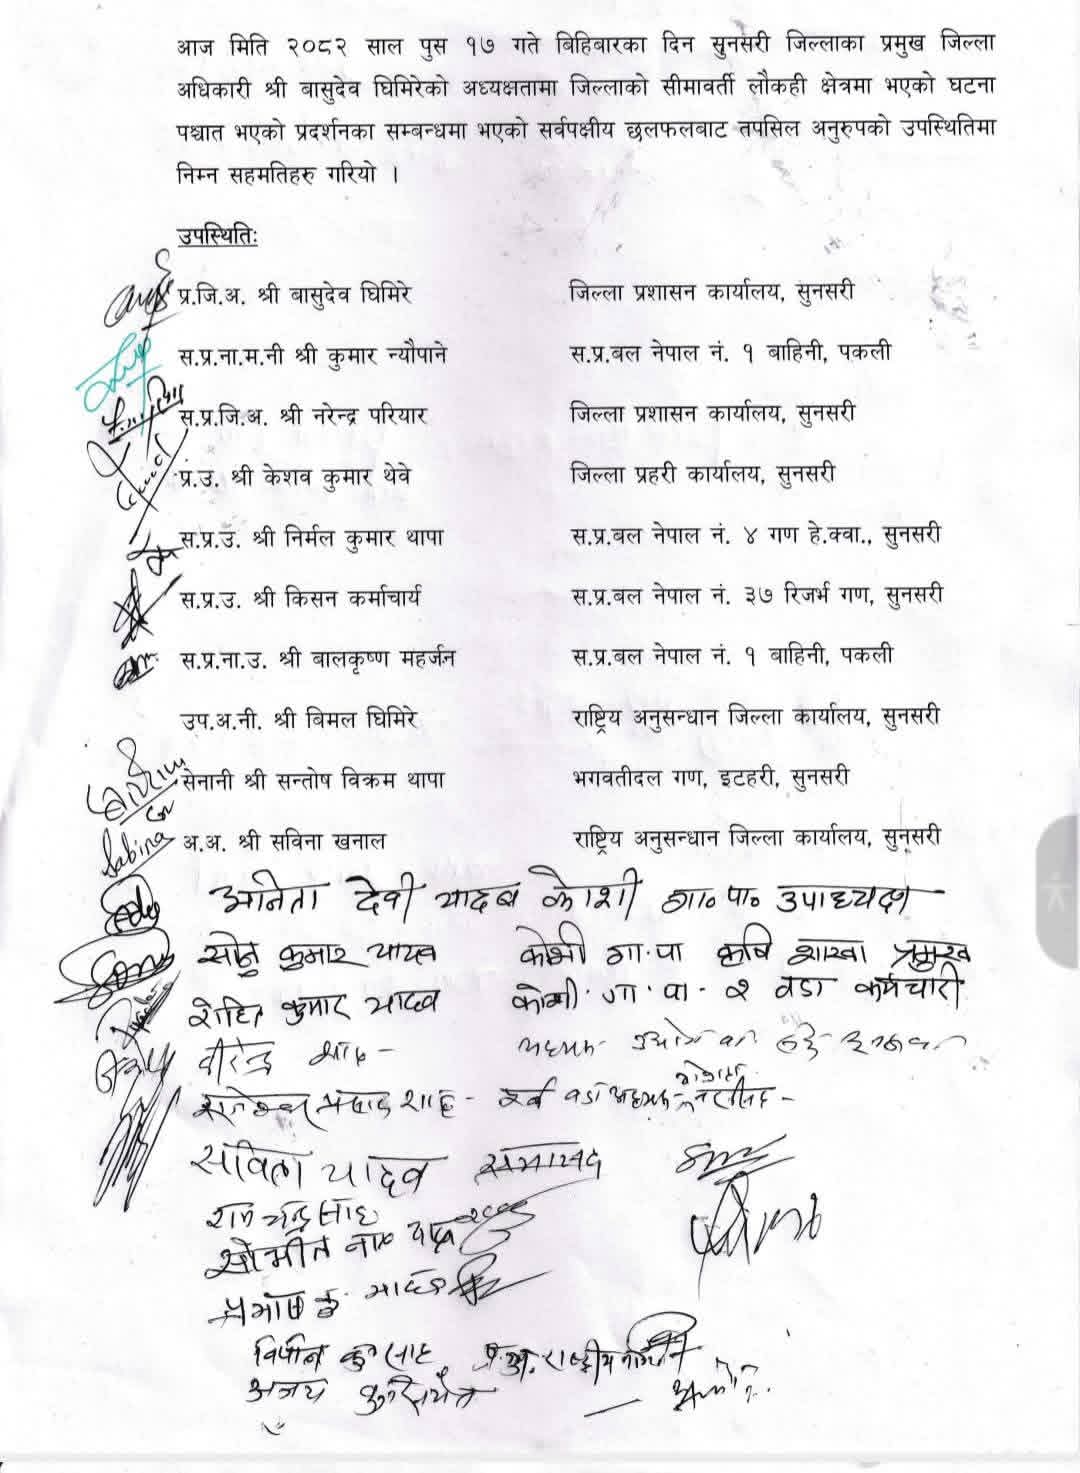 आज मिति २०८२ साल पुस १७ गते बिहिबारका दिन सुनसरी जिल्लाका प्रमुख जिल्ला
अधिकारी श्री बासुदेव घिमिरेको अध्यक्षतामा जिल्लाको सीमावर्ती लौकही क्षेत्रमा भएको घटना
पश्चात भएको प्रदर्शनका सम्बन्धमा भएको सर्वपक्षीय छलफलबाट तपसिल अनुरुपको उपस्थितिमा
निम्न सहमतिहरु गरियो ।
उपस्थितिः
प्र.जि.अ. श्री बासुदेव घिमिरे जिल्ला प्रशासन कार्यालय, सुनसरी
स.प्र.ना.म.नी श्री कुमार न्यौपाने स.प्र.बल नेपाल नं. १ बाहिनी, पकली
स.प्र.जि.अ. श्री नरेन्द्र परियार जिल्ला प्रशासन कार्यालय, सुनसरी
प्र.उ. श्री केशव कुमार थेवे जिल्ला प्रहरी कार्यालय, सुनसरी
स.प्र.उ. श्री निर्मल कुमार थापा स.प्र.बल नेपाल नं. ४ गण हे.क्वा., सुनसरी
स.प्र.उ. श्री किसन कर्माचार्य स.प्र.बल नेपाल नं. ३७ रिजर्भ गण, सुनसरी
स.प्र.ना.उ. श्री बालकृष्ण महर्जन स.प्र.बल नेपाल नं. १ बाहिनी, पकली
उप.अ.नी. श्री बिमल घिमिरे राष्ट्रिय अनुसन्धान जिल्ला कार्यालय, सुनसरी
सेनानी श्री सन्तोष विक्रम थापा भगवतीदल गण, इटहरी, सुनसरी
Sabina अ.अ. श्री सविना खनाल राष्ट्रिय अनुसन्धान जिल्ला कार्यालय, सुनसरी
अनिता देवी यादव कोशी गा॰ पा॰ उपाध्यक्ष
सोनु कुमार यादव कोशी गा.पा कृषि शाखा प्रमुख
रोहित कुमार यादव कोशी.गा.पा-२ वडा कर्मचारी
वीरेन्द्र साह -
प्रसाद शाह - पूर्व वडा अध्यक्ष
सविता यादव
रामचन्द्र साह
यादव
विपीन कु साह
अजय